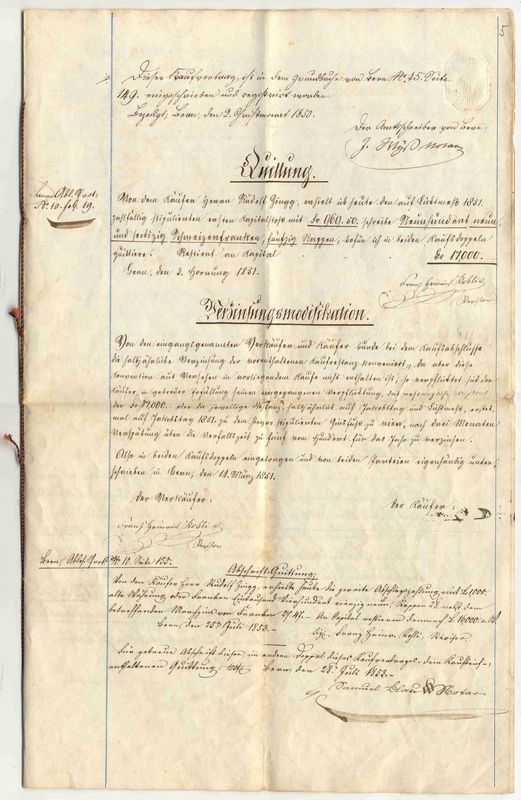 5
Dieser Kaufvertrag ist in dem Grundbuche von Bern No. 45. Seite
149. eingeschrieben und registrirt worden.
Bezeugt, Bern, den 2. Christmonat 1850.
Der Amtschreiber von Bern:
J. Wyß Notar
Quittung.
No. 10. fol. 19.
Von dem Käufer Herrn Rudolf Zingg, erhielt ich heute den auf Lichtmeß 1851.
zahlfällig stipulirten ersten Kapitalstoß mit fr 969. 50. schreibe Neunhundert neun
und sechszig Schweizerfranken, fünfzig Rappen, wofür ich in beiden Kaufsdoppeln
quittiere. Restirt an Kapital fr 17,000.
Bern, den 3. Hornung 1851.
Franz Heinrich Kohli
Revisor
Verzinsungsmodifikation.
Von den eingangsgenannten Verkäufer und Käufer wurde bei dem Kaufsabschlusse
die halbjährliche Verzinsung der vorenthaltenen Kaufrestanz konvenirt, da aber diese
Convention aus Versehen in vorliegendem Kaufe nicht enthalten ist, so verpflichtet sich der
Käufer in getreuer Erfüllung seiner eingegangenen Verpflichtung, das
der fr 17,000. oder die jeweilige Restanz halbjährlich auf Jakobstag und Lichtmeß, erst
mal auf Jakobstag 1851. zu dem stipulirten Zinsfuß zu nach drei Monaten
Verspätung über die Verfallzeit zu fünf vom Hundert für das Jahr zu verzinsen.
Also in beiden Kaufsdoppeln eingetragen und von beiden Parteien eigenhändig unter,
schrieben in Bern, den 14. März 1851.
Der Verkäufer: Der Käufer:
Franz Heinrich Kohli
Revisor
Bern, No. 10. Seite 155.
Abschrift-Quittung.
Von dem Käufer Herr Rudolf Zingg, erhielte heute die zweite Abschlagszahlung mit L 1000.
alte Währung, oder Franken Eintausend Vierhundert vierzig neun, Rappen 28. nebst dem
betreffenden Marchzins von Franken 27. 47. An Capital restieren demnach L 16000. a. W.
Bern, den 25. Juli 1853. Franz Heinr. Kohli, Revisor.
Für getreue Abschrift dieser, in andern Doppel dieses Kaufvertrags
enthaltenen Quittung, Bern, den 28. Juli 1853.
Samuel Blau Notar